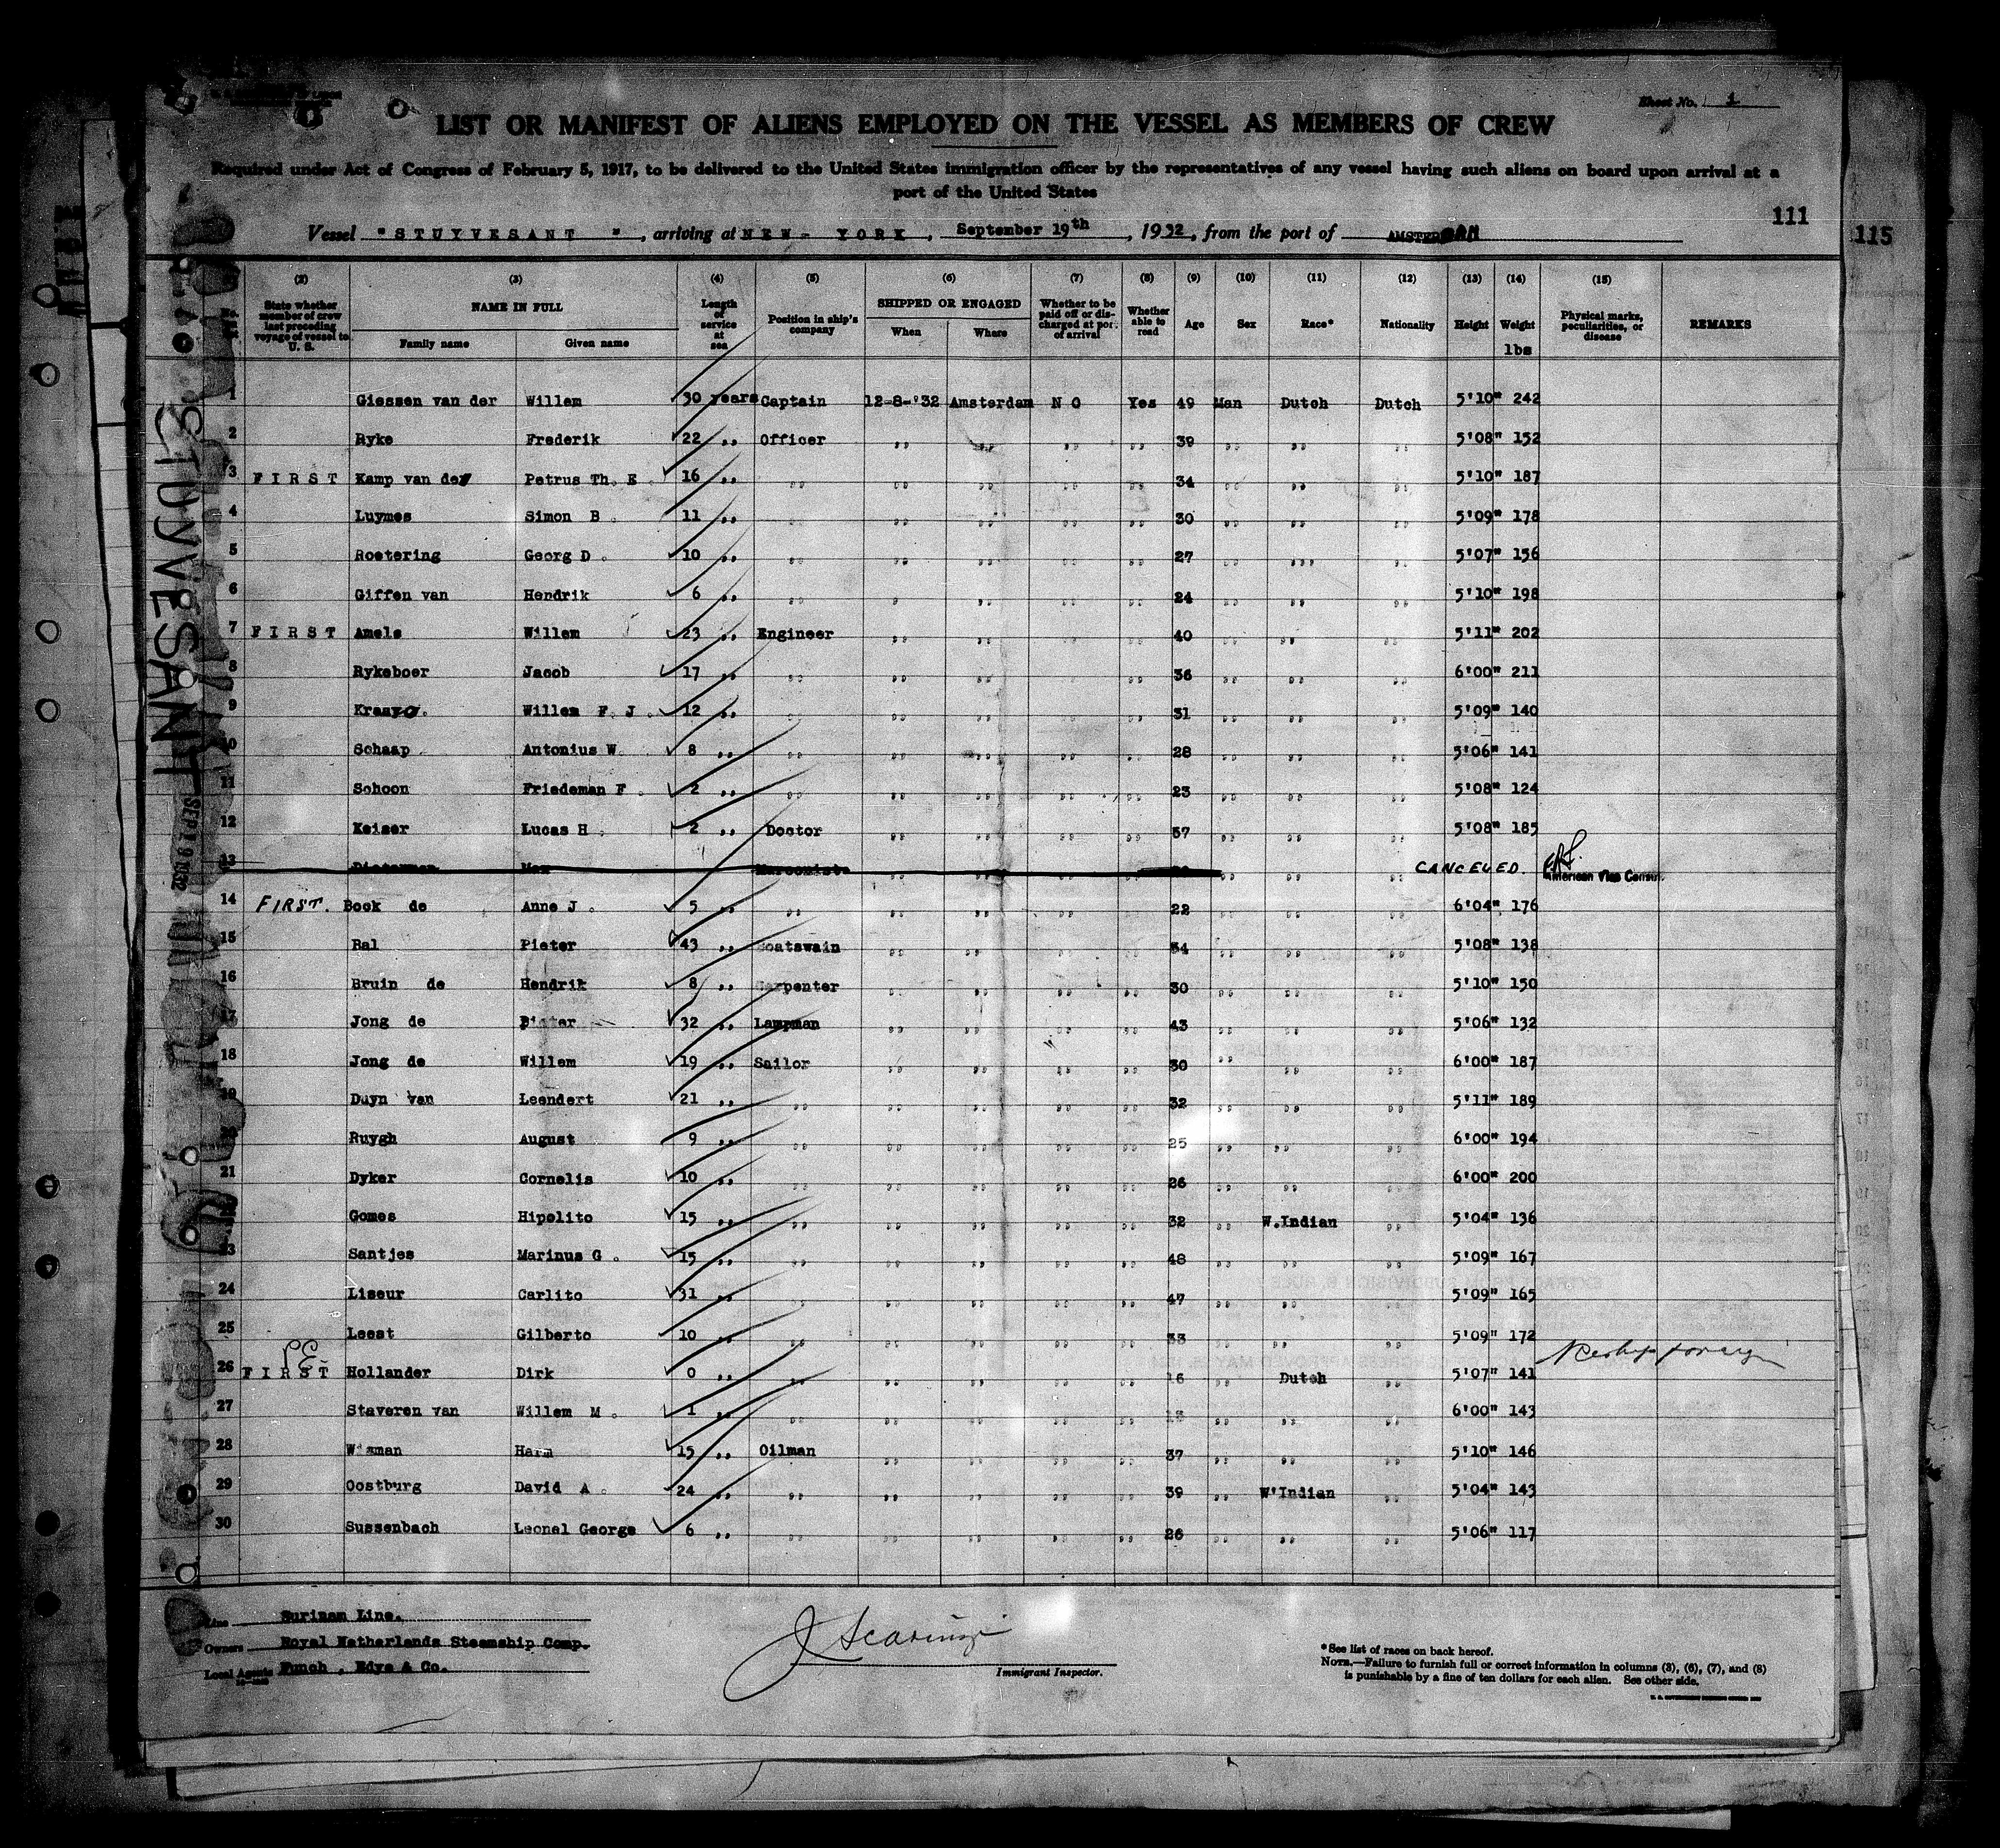 Sheet No. 1
LIST OR MANIFEST OF ALIENS EMPLOYED ON THE VESSEL AS MEMBERS OF CREW
Required under Act of Congress of February 5, 1917, to be delivered to the United States immigration officer by the representatives of any vessel having such aliens on board upon arrival at a
port of the United States
111
115
Vessel "STUYVESANT", arriving at NEW-YORK, September 19th, 1932, from the port of AMSTERDAM
(2) (3) (4) (5) (6) (7) (8) (9) (10) (11) (12) (13) (14) (15)
State whether member of crew last preceding voyage of vessel to U. S. NAME IN FULL Family name Given name Length of service at sea Position in ship's company SHIPPED OR ENGAGED When Where Whether to be paid off or discharged at port of arrival Whether able to read Age Sex Race* Nationality Height Weight lbs Physical marks, peculiarities, or disease REMARKS
1 Giessen van der Willem 30 years Captain 12-8-'32 Amsterdam NO Yes 49 Man Dutch Dutch 5'10" 242
2 Ryke Frederik 22 ,, Officer ,, ,, ,, ,, 39 ,, ,, ,, 5'08" 152
3 FIRST Kamp van de Petrus Th. E. 16 ,, ,, ,, ,, ,, ,, 34 ,, ,, ,, 5'10" 187
4 Luymes Simon B. 11 ,, ,, ,, ,, ,, ,, 30 ,, ,, ,, 5'09" 178
5 Roetering Georg D. 10 ,, ,, ,, ,, ,, ,, 27 ,, ,, ,, 5'07" 156
6 Giffen van Hendrik 6 ,, ,, ,, ,, ,, ,, 24 ,, ,, ,, 5'10" 198
7 FIRST Amels Willem 23 ,, Engineer ,, ,, ,, ,, 40 ,, ,, ,, 5'11" 202
8 Rykeboer Jacob 17 ,, ,, ,, ,, ,, ,, 36 ,, ,, ,, 6'00" 211
9 Willem F. J. 12 ,, ,, ,, ,, ,, ,, 31 ,, ,, ,, 5'09" 140
10 Schaap Antonius W. 8 ,, ,, ,, ,, ,, ,, 28 ,, ,, ,, 5'06" 141
11 Schoon Friedeman F. 2 ,, ,, ,, ,, ,, ,, 23 ,, ,, ,, 5'08" 124
12 Keizer Lucas H. 2 ,, Doctor ,, ,, ,, ,, 57 ,, ,, ,, 5'08" 185
13 Max Marconist ,, ,, ,, CANCELED. American Vice Consul
14 FIRST. Book de Anne J. 5 ,, ,, ,, ,, ,, ,, 22 ,, ,, ,, 6'04" 176
15 Bal Pieter 43 ,, Boatswain ,, ,, ,, ,, 54 ,, ,, ,, 5'08" 138
16 Bruin de Hendrik 8 ,, Carpenter ,, ,, ,, ,, 30 ,, ,, ,, 5'10" 150
17 Jong de Pieter 32 ,, Lampman ,, ,, ,, ,, 43 ,, ,, ,, 5'06" 132
18 Jong de Willem 19 ,, Sailor ,, ,, ,, ,, 30 ,, ,, ,, 6'00" 187
19 Duyn van Leendert 21 ,, ,, ,, ,, ,, ,, 32 ,, ,, ,, 5'11" 189
20 Ruygh August 9 ,, ,, ,, ,, ,, ,, 25 ,, ,, ,, 6'00" 194
21 Dyker Cornelis 10 ,, ,, ,, ,, ,, ,, 26 ,, ,, ,, 6'00" 200
22 Gomes Hipolito 15 ,, ,, ,, ,, ,, ,, 32 ,, W.Indian ,, 5'04" 136
23 Santjes Marinus G. 15 ,, ,, ,, ,, ,, ,, 48 ,, ,, ,, 5'09" 167
24 Liseur Carlito 31 ,, ,, ,, ,, ,, ,, 47 ,, ,, ,, 5'09" 165
25 Leest Gilberto 10 ,, ,, ,, ,, ,, ,, 33 ,, ,, ,, 5'09" 172
26 FIRST Hollander Dirk 0 ,, ,, ,, ,, ,, ,, 16 ,, Dutch ,, 5'07" 141
27 Staveren van Willem M. 1 ,, ,, ,, ,, ,, ,, ,, ,, ,, 6'00" 143
28 Harm 15 ,, Oilman ,, ,, ,, ,, 37 ,, ,, ,, 5'10" 146
29 Oostburg David A. 24 ,, ,, ,, ,, ,, ,, 39 ,, W'Indian ,, 5'04" 143
30 Sussenbach Leonel George 6 ,, ,, ,, ,, ,, ,, 26 ,, ,, ,, 5'06" 117
STUYVESANT
SEP 19 1932
Line Surinam Line.
Owners Royal Netherlands Steamship Comp.
Local Agents Funch, Edye & Co.
Immigrant Inspector.
*See list of races on back hereof.
NOTE.—Failure to furnish full or correct information in columns (3), (6), (7), and (8)
is punishable by a fine of ten dollars for each alien. See other side.